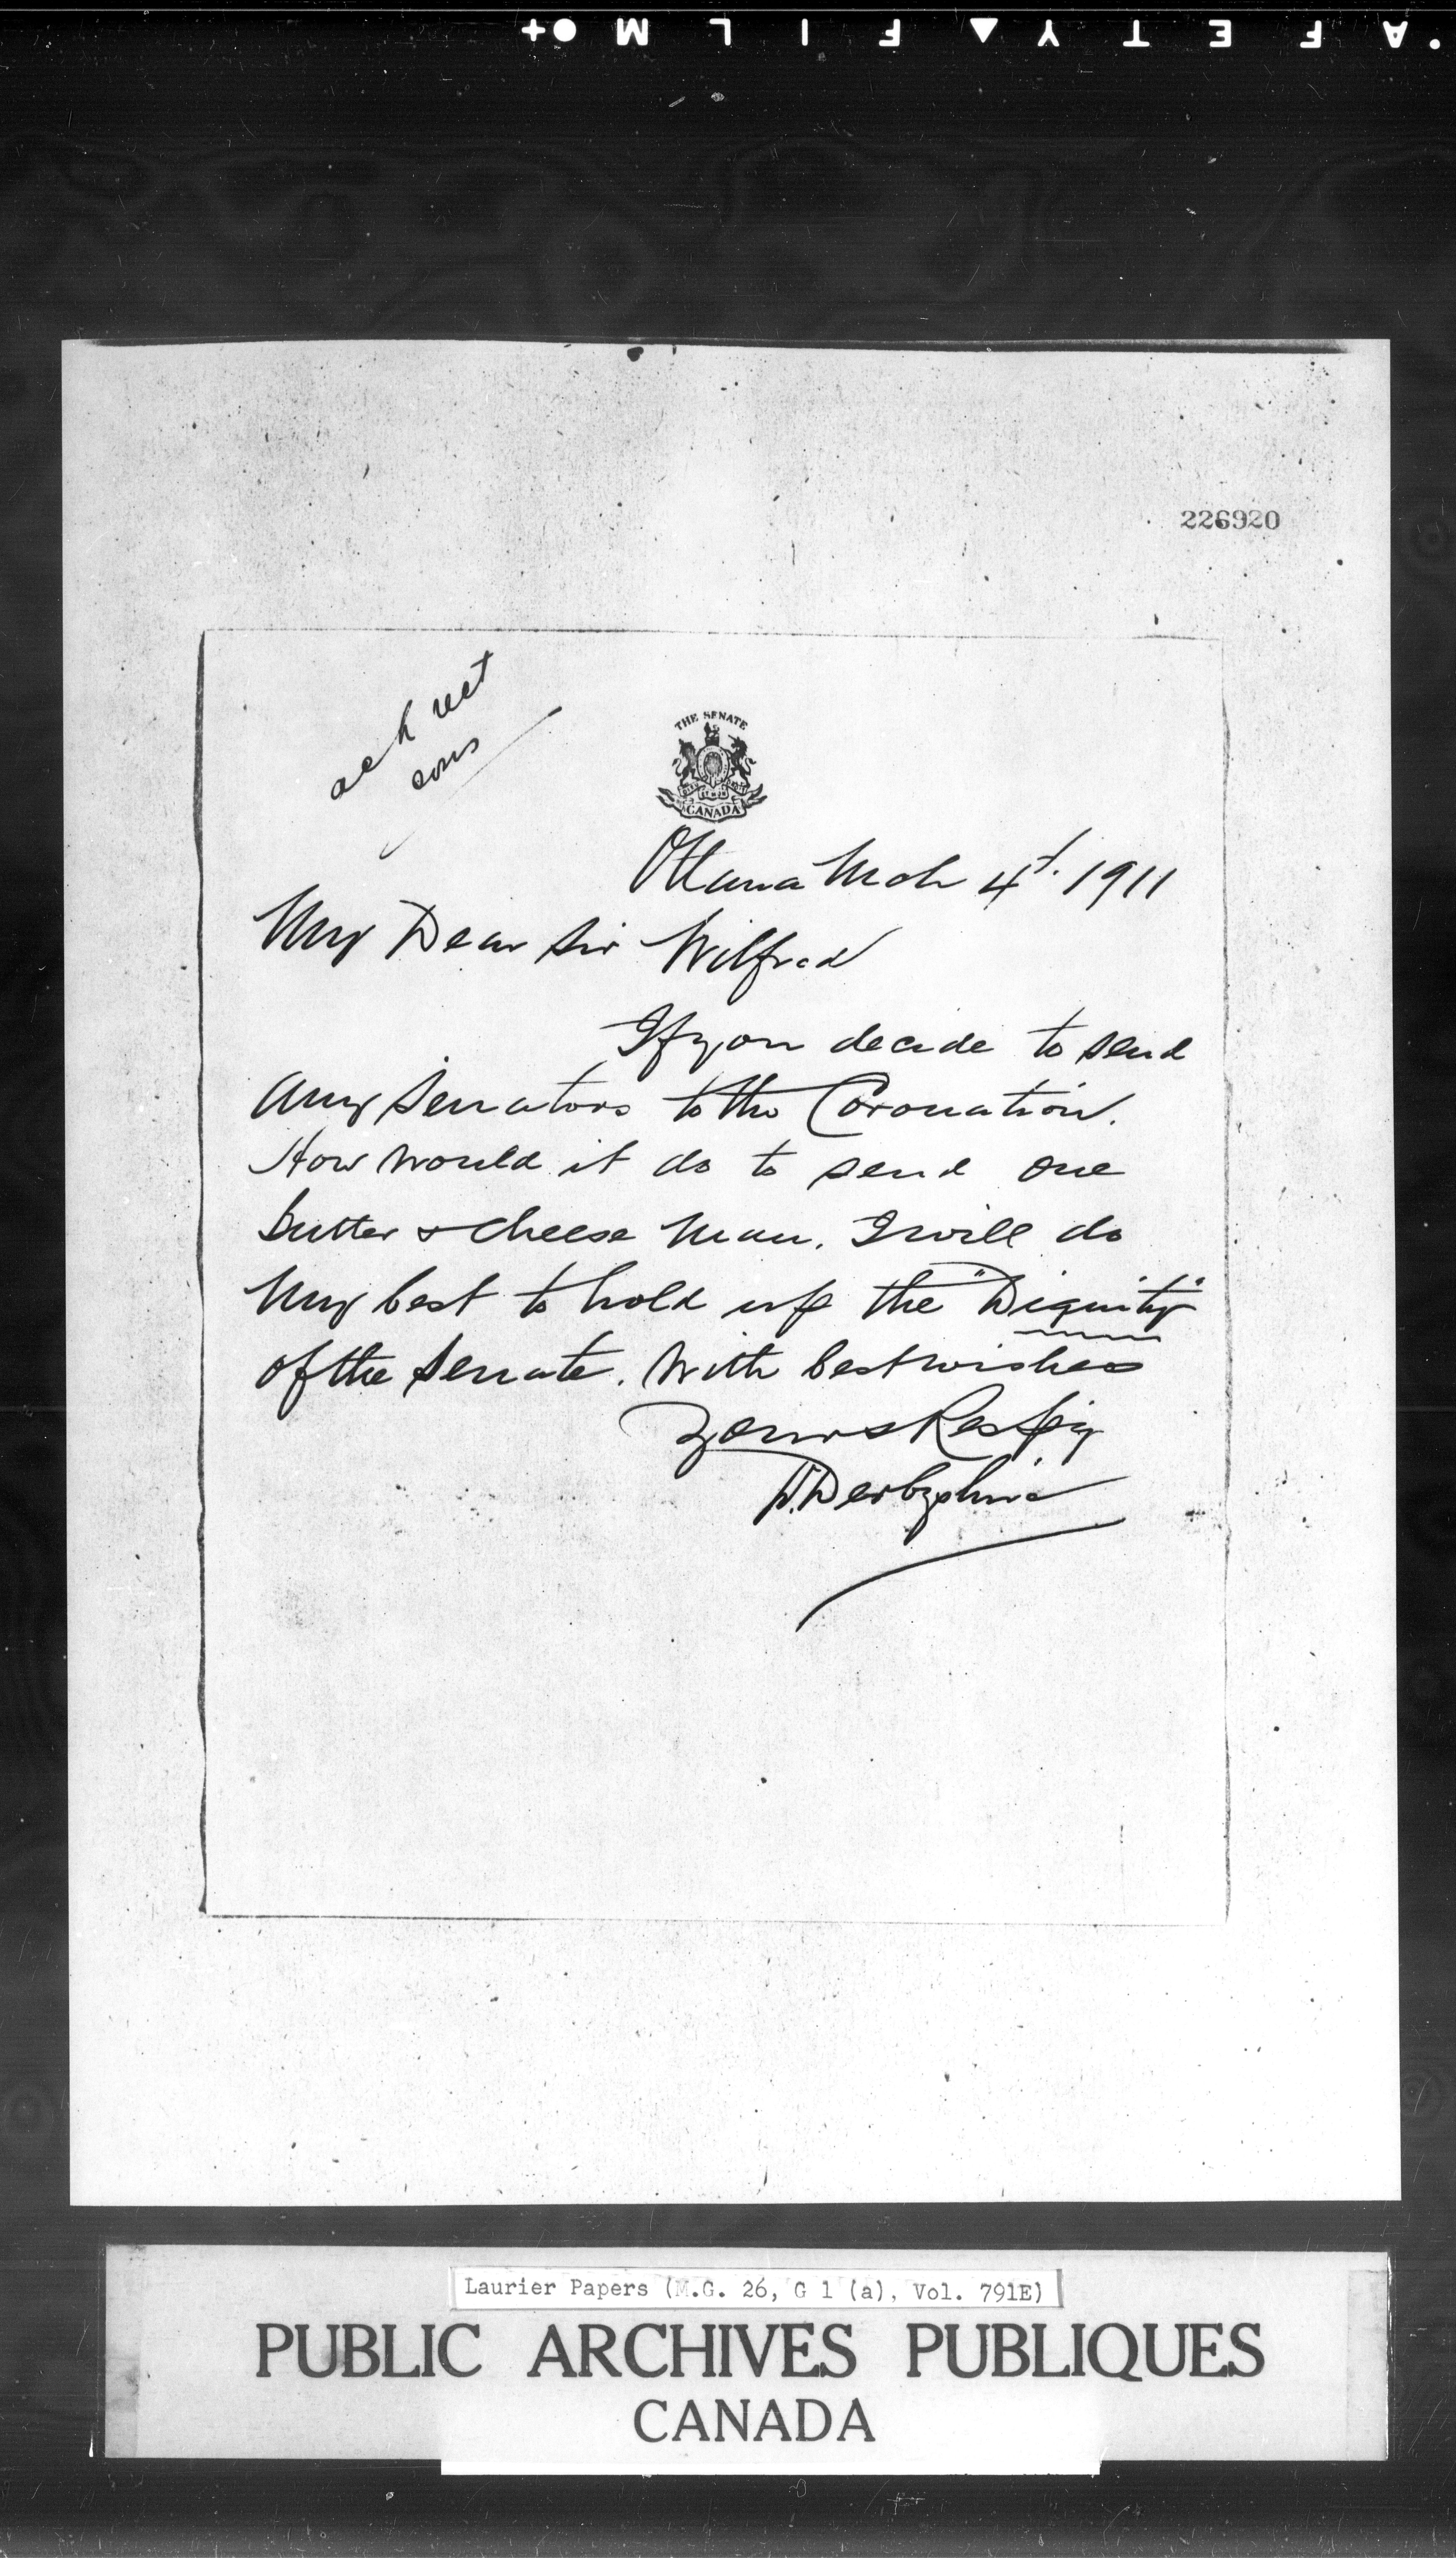 SAFETY▲FILM●+
226920
ack rect
cons
THE SENATE
CANADA
Ottawa Mch 4th. 1911
My Dear Sir Wilfred
If you decide to send
any Senators to the Coronation.
How would it do to send one
butter & cheese man. I will do
my best to hold up the "Dignity"
of the Senate. With best wishes
Yours Respy
D. Derbyshire
Laurier Papers (M.G. 26, G 1 (a), Vol. 791E)
PUBLIC ARCHIVES PUBLIQUES
CANADA